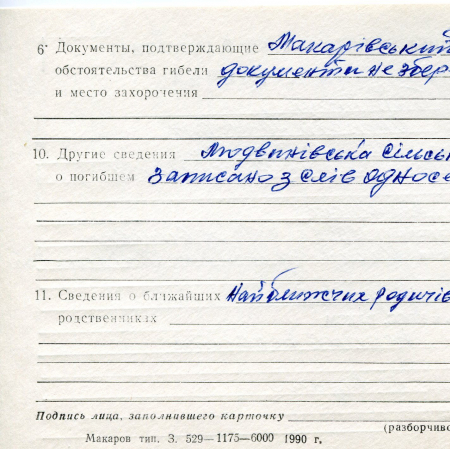 6· Документы, подтверждающие Макарівський
обстоятельства гибели документи не збер
и место захоронения
10. Другие сведения Людвинівська сільсь
о погибшем Записано з слів односе
11. Сведения о ближайших Найближчих родичів
родственниках
Подпись лица, заполнившего карточку
(разборчиво
Макаров тип. З. 529—1175—6000 1990 г.